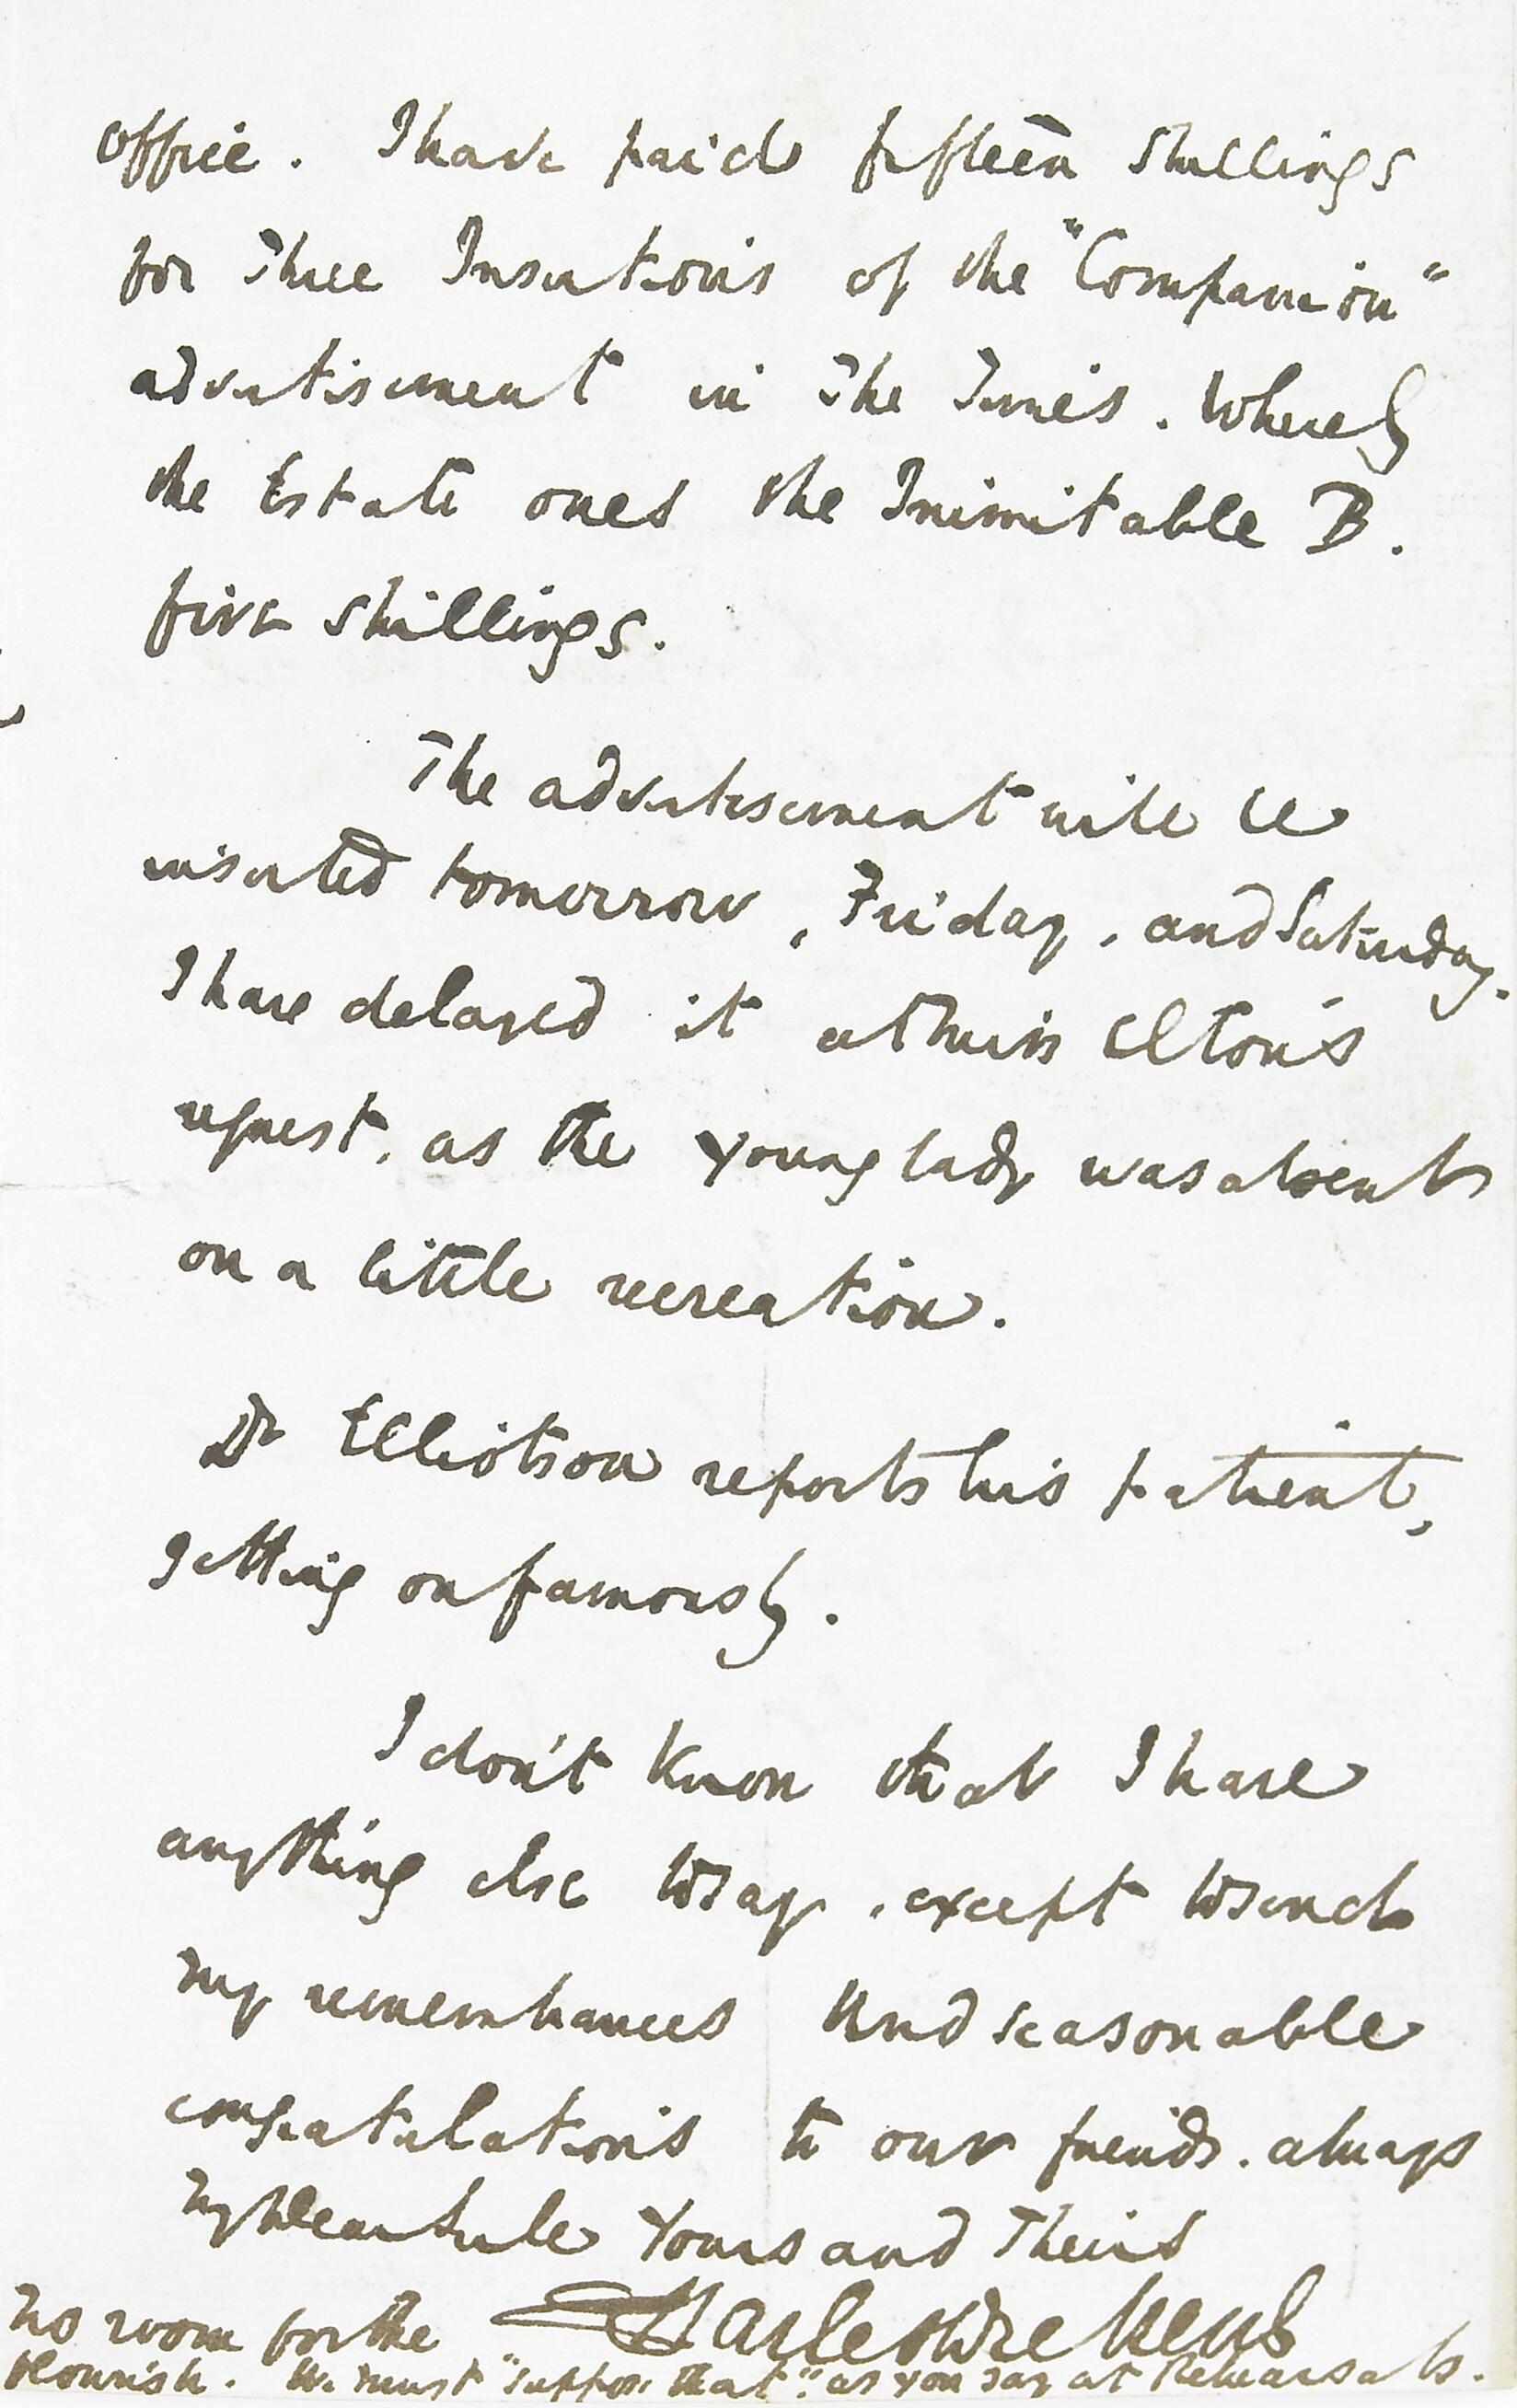 office. I have paid fifteen shillings
for Three Insertions of the "Companion"
advertisement in The Times. Whereby
the Estate owes the Inimitable B.
five shillings.
The advertisement will be
inserted tomorrow, Friday, and Saturday.
I have delayed it at Miss Elton's
request, as the young lady was absent
on a little recreation.
Dr Elliotson reports his patient,
getting on famously.
I don't know that I have
anything else to say, except to send
my remembrances and seasonable
congratulations to our friends. always
My Dear Serle Yours and Theirs
No room for the Charles Dickens
flourish. We must "suppose that": as you say at Rehearsals.